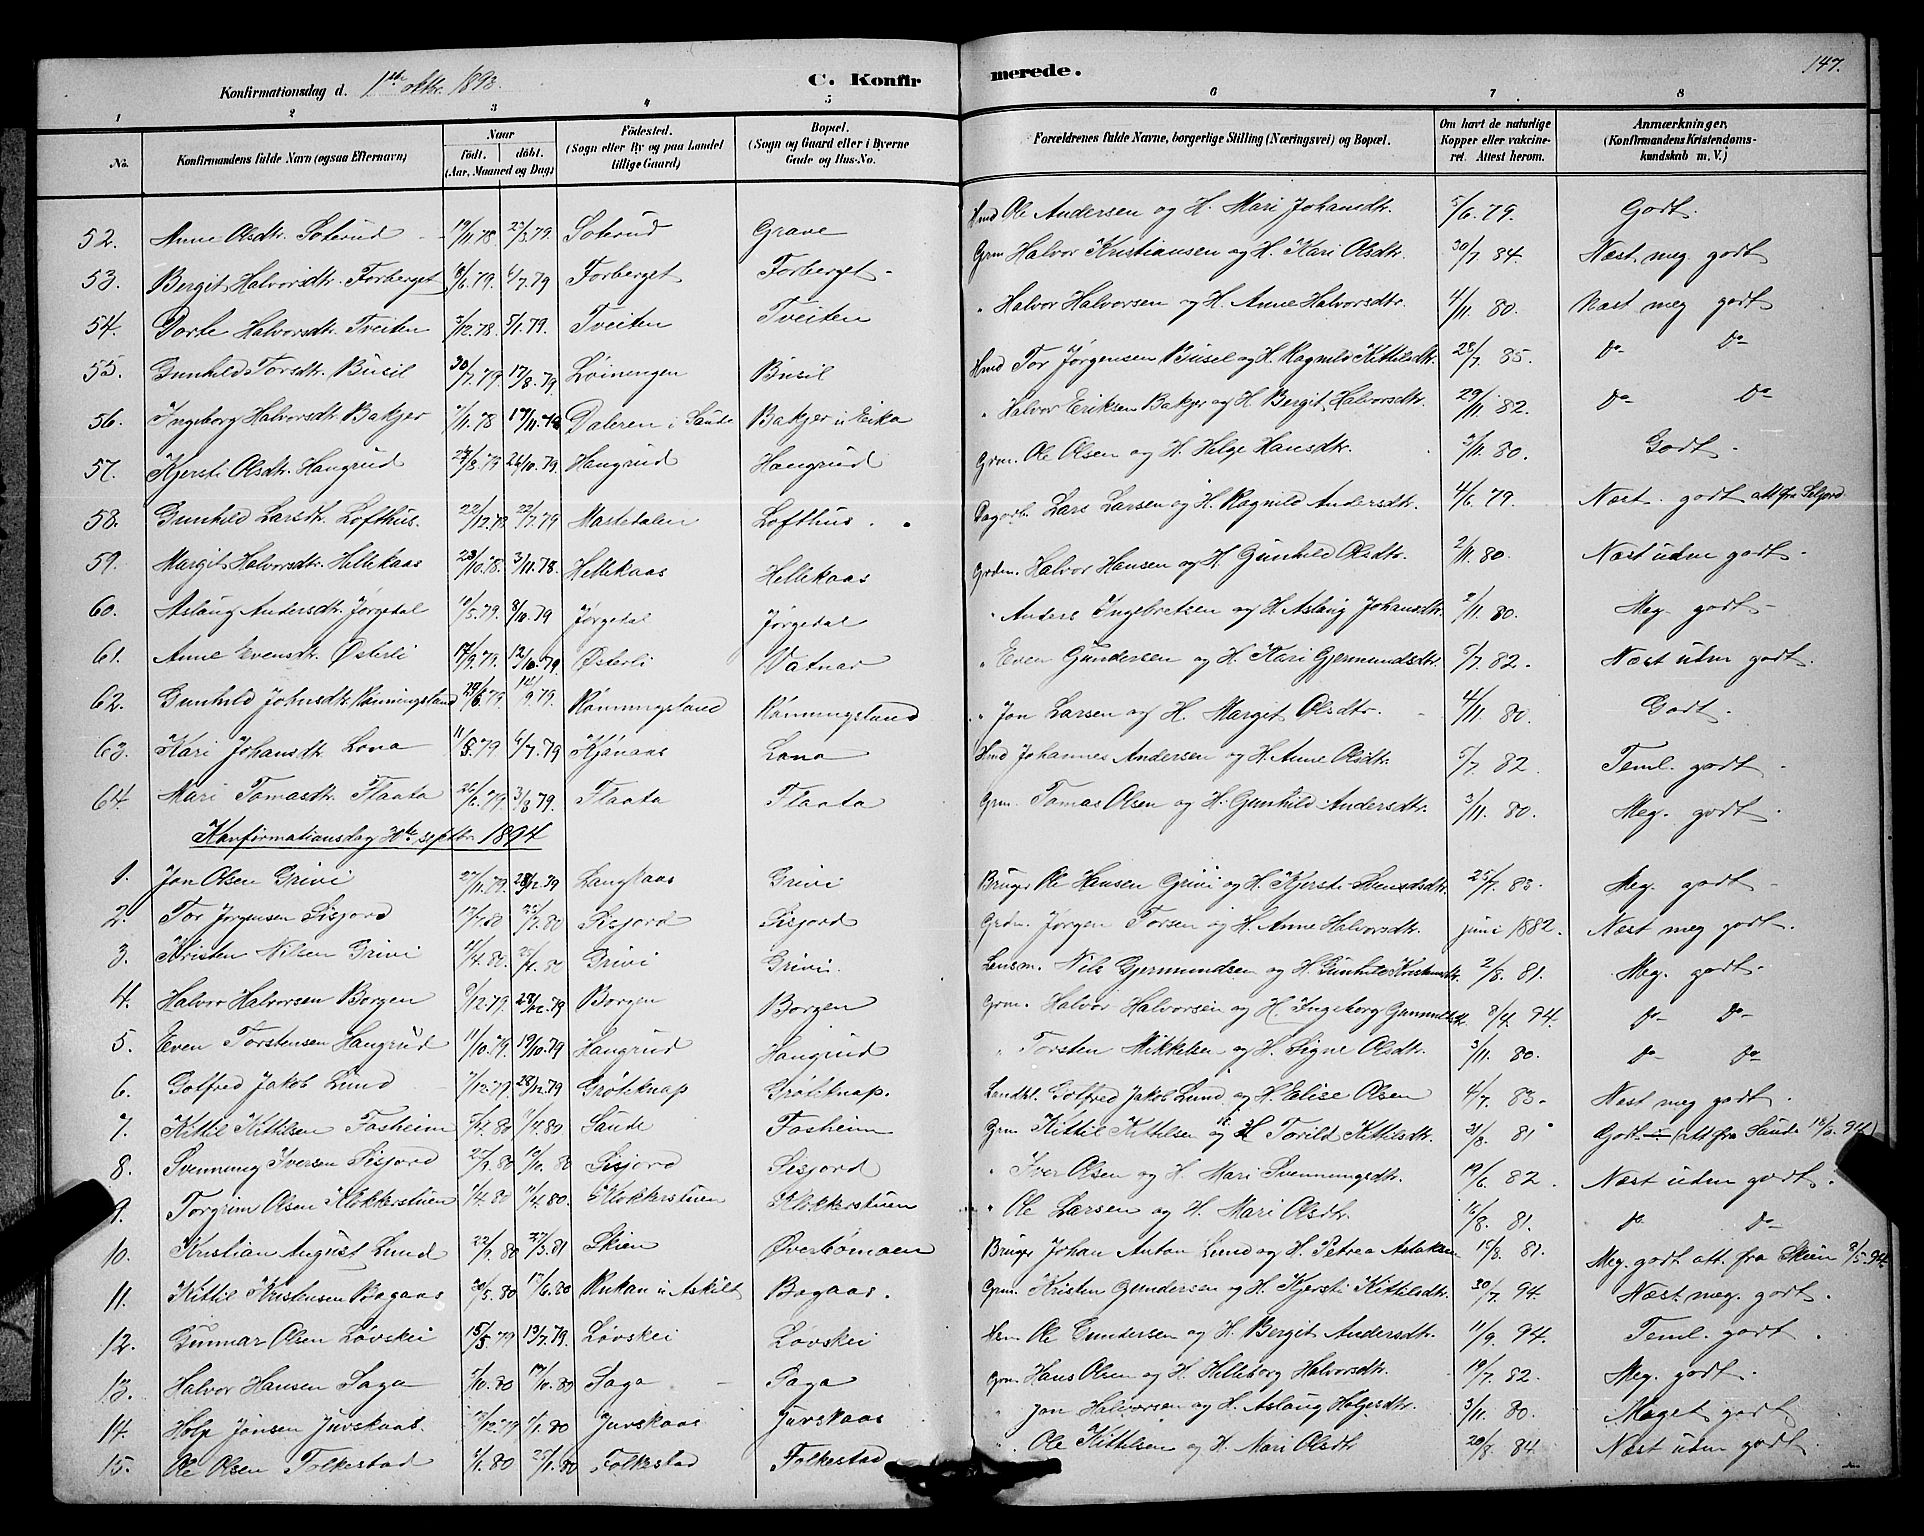 147.
Konfirmationsdag d. 1ste oktbr. 1893. C. Konfirmerede.
1 2 3 4 5 6 7 8
No. Konfirmandens fulde Navn (ogsaa Efternavn) Naar födt. döbt. (Aar, Maaned og Dag) Födested. (Sogn eller By og paa Landet tillige Gaard) Bopæl. (Sogn og Gaard eller i Byerne Gade og Hus-No. Forældrenes fulde Navne, borgerlige Stilling (Næringsvei) og Bopæl. Om havt de naturlige Kopper eller vakcineret. Attest herom. Anmærkninger, (Konfirmandens Kristendomskundskab m. V.)
52. Anne Olsdtr. Soterud 19/11.78 23/3.79. Soterud Grave Hmd Ole Andersen og H. Mari Johansdtr. 5/6.79. Godt.
53. Bergit Halvorsdtr. Forberget 8/6.79. 6/7.79 Forberget Forberget Grm Halvor Kristiansen og H. Kari Olsdtr. 30/7.84. Næst. meg godt
54. Dorte Halvorsdtr. Tveiten 3/12.78. 5/1.79. Tveiten Tveiten " Halvor Halvorsen og H. Anne Halvorsdtr. 4/11.80. Næst meg godt
55. Gunhild Torsdtr. Busil 30/7.79 17/8.79 Løiningen Busil Hmd Tor Jørgensen Busel og H. Ragnild Kittilsdtr. 28/7 85. do do
56. Ingeborg Halvorsdtr. Bakjer /11.78 17/11.78 Daleren i Saude Bakjer u Eika " Halvor Eriksen Bakjer og H. Bergit Halvorsdtr. 29/11.82. do do
57. Kjersti Olsdtr. Haugrud 27/8.79 26/10.79. Haugrud Haugrud Grm. Ole Olsen og H. Helge Hansdtr. 3/11.80. Godt
58. Gunhild Larsdtr. Lofthus. 22/12.78 22/7.79 Mastedalen Lofthus. Dagarb. Lars Larsen og H. Ragnild Andersdtr. 4/6.79 Næst. godt att fra Seljord
59. Margit Halvorsdtr. Hellekaas 23/10.78. 3/11.78. Hellekaas Hellekaas Grdm. Halvor Hansen og H. Gunhild Olsdtr. 2/11.80. Næst udm godt
60. Aslaug Andersdtr. Jørgedal /5.79. 8/10.79 Jørgedal Jørgedal " Anders Ingebretsen og H. Aslaug Johansdtr. 2/11.80. Meg. godt
61. Anne Evensdtr. Østerli 17/9.79. 12/10.79. Østerli Vatnar " Even Gundersen og H. Kari Gjermundsdtr. 5/7.82. Næst udm godt.
62. Gunhild Johnsdtr. Rønningsland 29/6.79. 14/9.79. Rønningsland Rønningsland " Jon Larsen og H. Margit Olsdtr. 4/11 80. Godt.
63. Kari Johansdtr Lona 11/5.79 6/7.79 Kjønaas Lona Hmd Johannes Andersen og H. Anne Olsdtr. 5/7.82. Teml. godt
64. Mari Tomasdtr. Flaata 26/1.79. 3/3 79. Flaata Flaata Grm. Tomas Olsen og H. Gunhild Andersdtr. 3/11.80. Meg. godt
Konfirmationsdag 30te septbr. 1894
1. Jon Olsen Grivi 27/11.79. 28/12.79 Langkaas Grivi Bruger Ole Hansen Grivi og H. Kjersti 25/7.83. Meg. godt
2. Tor Jørgensen Sisjord 17/1.80 22/2.80 Sisjord Sisjord Grdm. Jørgen Torsen og H. Anne Halvorsdtr. juni 1882. Næst meg godt.
3. Kristen Nilsen Grivi 4/4.80. 25/4.80 Grivi Grivi. Lensm. Nils Gjermundsen og H. Gunhild Kristensdtr. 2/8.81. Meg. godt
4. Halvor Halvorsen Borgen 9/12.79. 28/12.79 Borgen Borgen Grm. Halvor Halvorsen og H. Ingeborg Gunnulfsdtr. 8/4.94. do do
5. Even Torstensen Haugrud 11/10.79. 19/10.79 Haugrud Haugrud " Torsten Mikkelsen og H. Signe Olsdtr. 3/11.80. do do
6. Golfred Jakob Lund /12.79 28/12.79 Grøtknap Grøtknap. Landhl. Golfred Jakob Lund og H. Elise Olsen 4/7.83. Næst meg godt
7. Kittil Kittilsen Fosheim /4.80 Saude Fosheim Grm Kittil Kittilsen og H Torild Kittilsdtr. 31/8.81 Godt (att fra Saude 18/3.94)
8. Svenning Iversen Sisjord 27/9.80 10/10.80 Sisjord Sisjord " Iver Olsen og H. Mari Svenningsdtr. 19/6.82. Næst udm godt.
9. Torgrim Olsen Klokkerstuen /4.80 /4.80. Klokkerstuen Klokkerstuen " Ole Larsen og H. Mari Olsdtr. 16/8.81. do do
10. Kristian August Lund 22/2.80 27/3.81 Skien Øverbømoen Bruger Johan Anton Lund og H. Petrea 15/8.81. Meg. godt att. fra Skien 8/5.94
11. Kittil Kristensen Bøgaas 20/5.80 17/6.80 Rukan u Askilt Bøgaas. Grm. Kristen Gundersen og H. Kjersti Kittilsdtr. 30/7.94. Næst meg. godt.
12. Gunnar Olsen Løvskei 15/5.79 13/7.79. Løvskei Løvskei Hm Ole Gundersen og H. Bergit Andersdtr. 11/9.94. Teml. godt.
13. Halvor Hansen Saga /10.80 17/10.80 Saga Saga Grm Hans Olsen og H. Helleborg Halvorsdtr. 19/7.82. Meg. godt.
14. Holje Jonsen Juvskaas. /12.79 /1.80 Juvskaas Juvskaas " Jon Halvorsen og H. Aslaug Holjesdtr. 3/11.80. Meget godt
15. Ole Olsen Folkestad /1.80 25/1.80 Folkestad Folkestad " Ole Kittilsen og H. Mari Olsdtr 20/8.84 Næst udm godt.